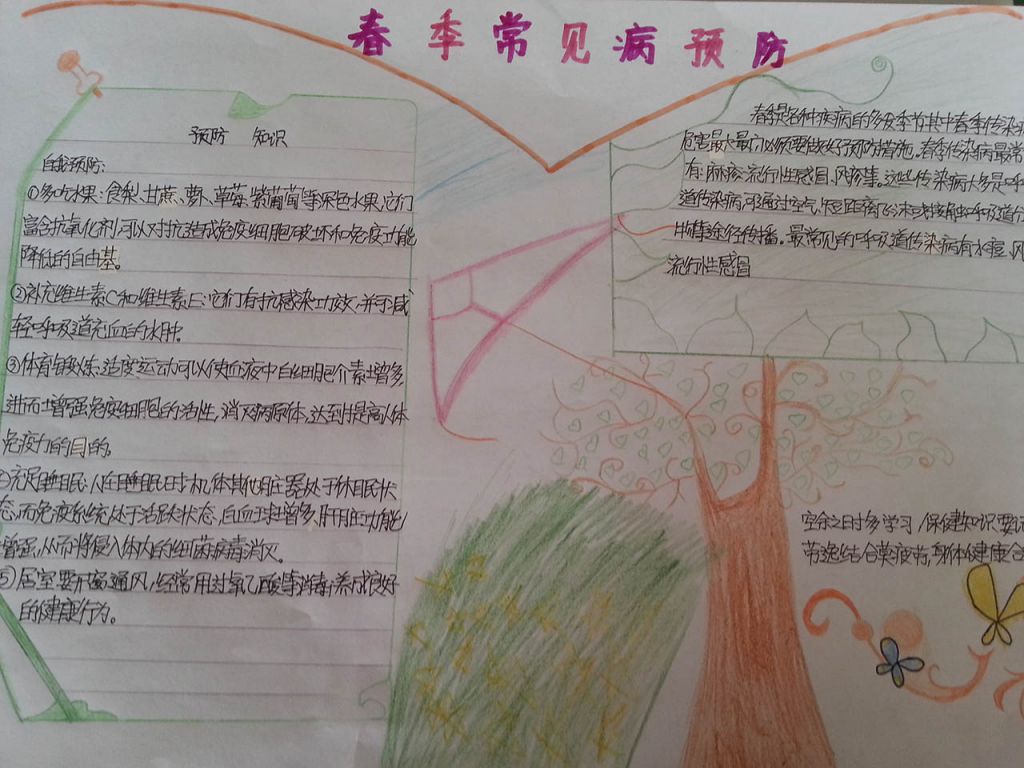 春季常见病预防
预防 知识
自我预防:
①多吃水果:食梨、甘蔗、萝、草莓、紫葡萄等深色水果,它们
富含抗氧化剂,可以对抗造成免疫细胞破坏和免疫功能
降低的自由基。
②补充维生素C和维生素E:它们有抗感染功效,并可减
轻呼吸道充血后的水肿。
③体育锻炼:适度运动可以使血液中白细胞介素增多,
进而增强免疫细胞的活性,消灭病原体,达到提高人体
免疫力的目的。
充足睡眠:人在睡眠时,机体其他脏器处于休眠状
态,而免疫系统处于活跃状态,白血球增多,肝脏功能
增强,从而将侵入体内的细菌病毒消灭。
⑤居室要开窗通风,经常用过氧乙酸等消毒,养成良好
的健康行为。
春季是各种疾病的多发季节其中春季传染
危害最大最广,必须要做好预防措施。春季传染病最常
有:麻疹、流行性感冒、风疹等。这些传染病大多是呼
道传染病,可通过空气、短距离飞沫或接触呼吸道
物等途径传播。最常见的呼吸道传染病有水痘、风
流行性感冒
空余之时多学习,保健知识要
劳逸结合莫疲劳,身体健康合